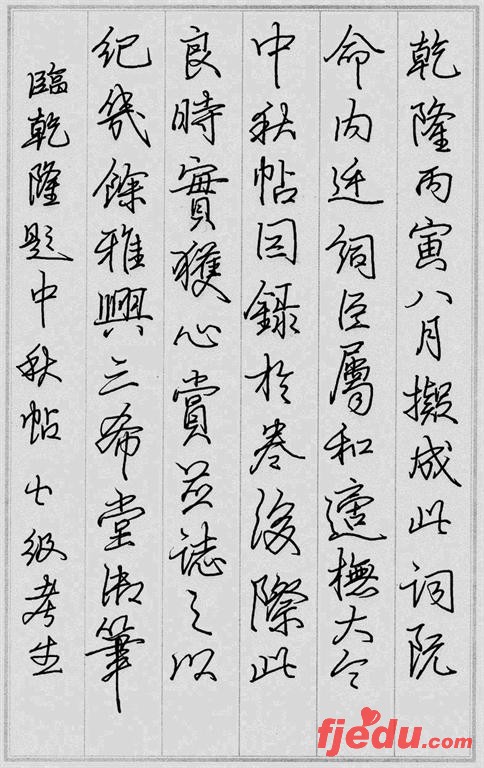 乾隆丙寅八月擬成此詞既
命内廷詞臣屬和適撫大令
中秋帖因錄於卷後際此
良時實獲心賞並誌之以
紀幾餘雅興三希堂御筆
臨乾隆题中秋帖 七级考生
fjedu.com